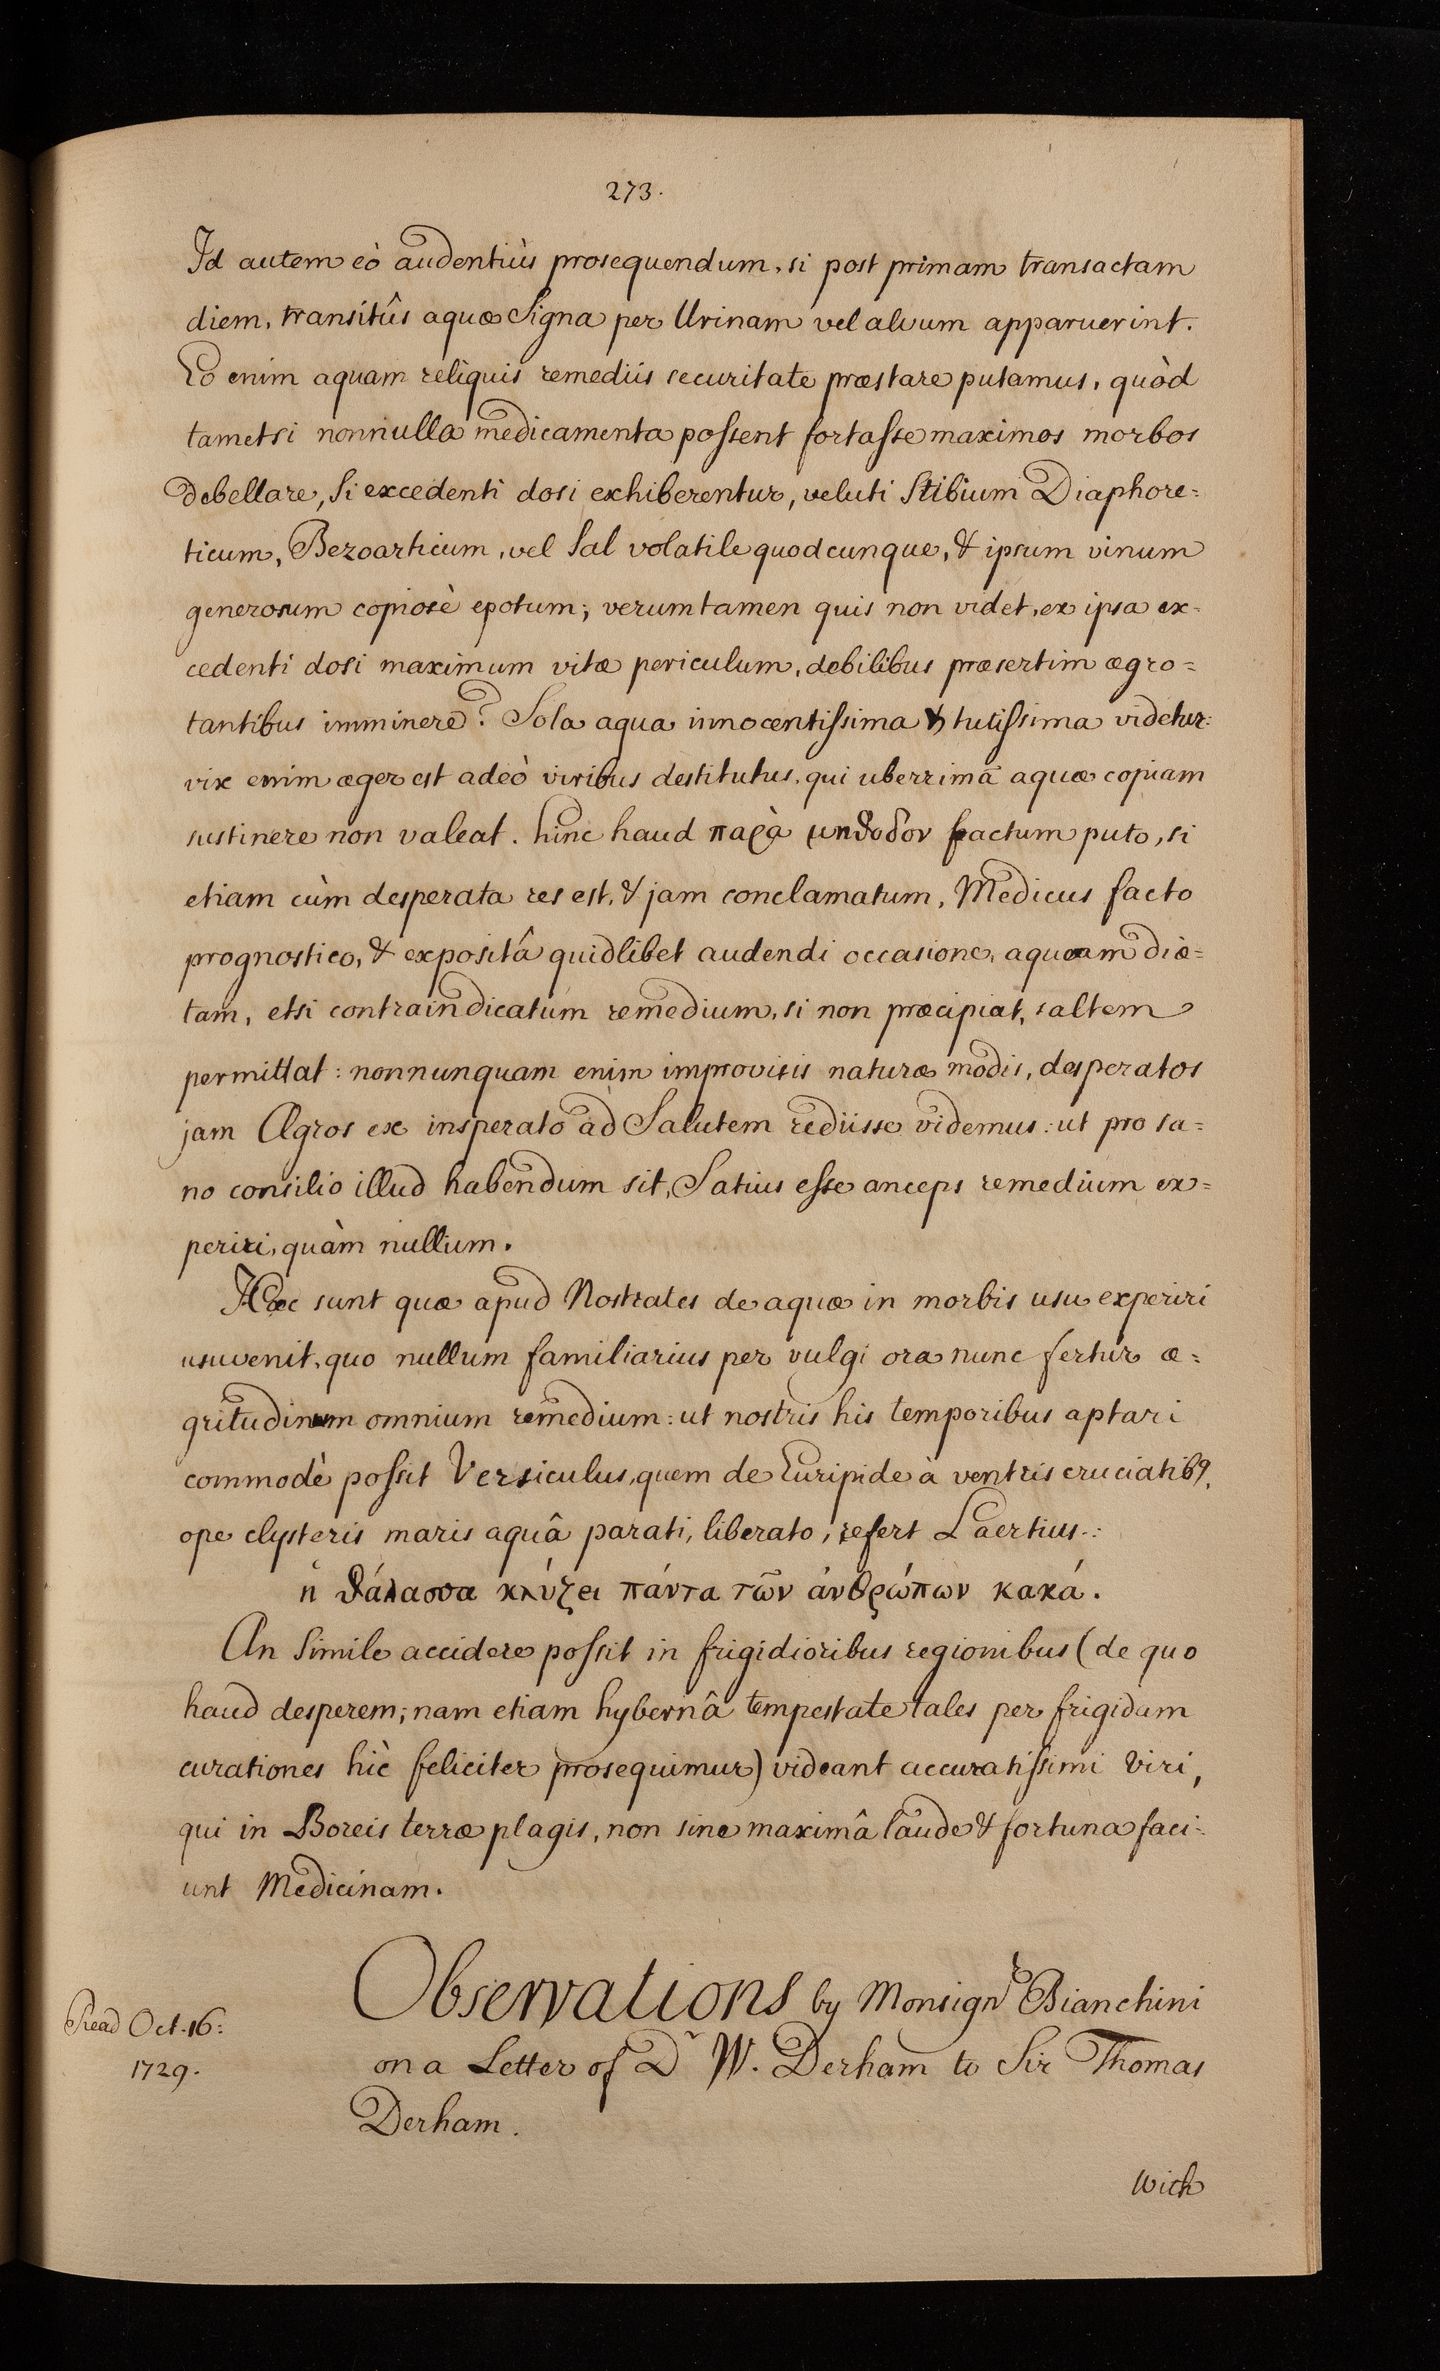 273.
Id autem eò audentiùs prosequendum, si post primam transactam
diem, transitûs aquæ Signa per Urinam vel alvum apparuerint.
Eo enim aquam reliquis remediis securitate præstare putamus, quòd
tametsi nonnulla medicamenta possent fortasse maximos morbos
debellare, si excedenti dosi exhiberentur, veluti Stibium Diaphore=
ticum, Bezoarticum, vel Sal volatile quodcunque, & ipsum vinum
generosum copiosè epotum; verumtamen quis non videt, ex ipsa ex-
cedenti dosi maximum vitæ periculum, debilibus præsertim ægro=
tantibus imminere? Sola aqua innocentissima & tutissima videtur:
vix enim æger est adeò viribus destitutus, qui uberrimā aquæ copiam
sustinere non valeat. hinc haud παρὰ μηθοδον factum puto, si
etiam cùm desperata res est, & jam conclamatum, Medicus facto
prognostico, & expositâ quidlibet audendi occasione, aqueam diæ=
tam, etsi contraindicatum remedium, si non præcipiat, saltem
permittat: nonnunquam enim improvisis naturæ modis, desperatos
jam Ægros ex insperato ad Salutem rediisse videmus: ut pro sa=
no consilio illud habendum sit, Satius esse anceps remedium ex=
periri, quàm nullum.
Hæc sunt quæ apud Nostrates de aquæ in morbis usu experiri
usuvenit, quo nullum familiarius per vulgi ora nunc fertur æ=
gritudinum omnium remedium: ut nostris his temporibus aptari
commodè possit Versiculus, quem de Euripide à ventris cruciatib9,
ope clysteris maris aquâ parati, liberato, refert Laertius.:
ἡ θάλασσα κλύζει πάντα τῶν ἀνθρώπων κακά.
An Simile accidere possit in frigidioribus regionibus (de quo
haud desperem; nam etiam hybernâ tempestate tales per frigidam
curationes hìc feliciter prosequimur) videant accuratissimi Viri,
qui in Boreis terræ plagis, non sine maximâ laude & fortuna faci=
unt Medicinam.
Read Oct. 16:
1729.
Observations by Monsignr Bianchini
on a Letter of Dr W. Derham to Sir Thomas
Derham.
With